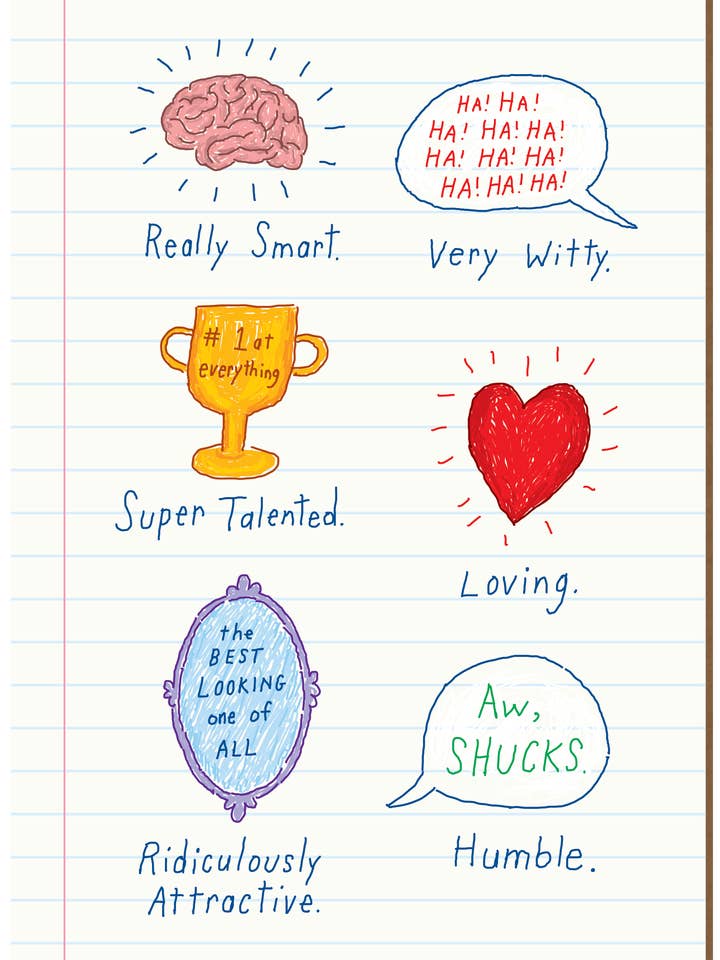 Really Smart.
HA! HA!
HA! HA! HA!
HA! HA! HA!
HA! HA! HA!
Very Witty.
# 1 at
everything
Super Talented.
Loving.
the
BEST
LOOKING
one of
ALL
Ridiculously
Attractive.
Aw,
SHUCKS.
Humble.